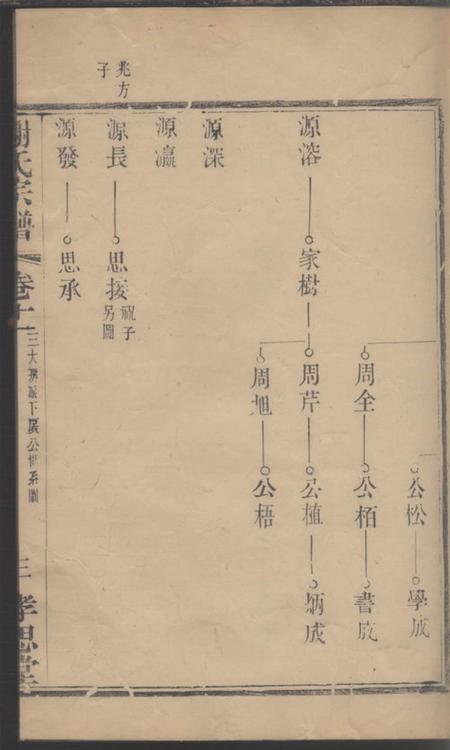 公松 學成
周全 公栢 書成
源溶 家樹 周芹 公植 炳成
周旭 公梧
源深
源瀛
兆方子
源長 思授 祧子另圖
源發 思承
謝氏宗譜 卷十一 三大房派下 公世系圖 三 孝思堂